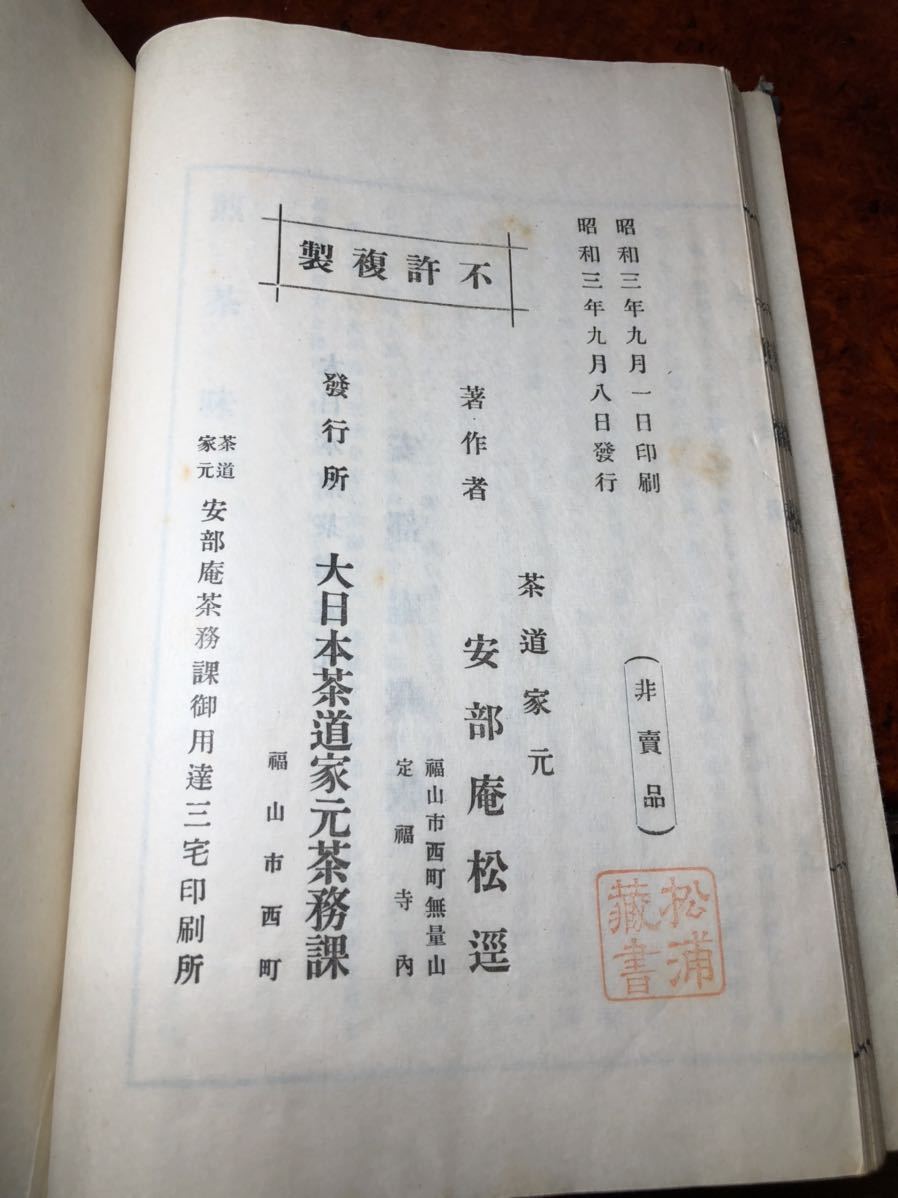 昭和三年九月一日印刷
昭和三年九月八日發行
(非賣品)
松浦
藏書
不許複製
著作者
茶道家元
安部庵松逕
福山市西町無量山
定福寺內
發行所
大日本茶道家元茶務課
福山市西町
茶道
家元
安部庵茶務課御用達三宅印刷所